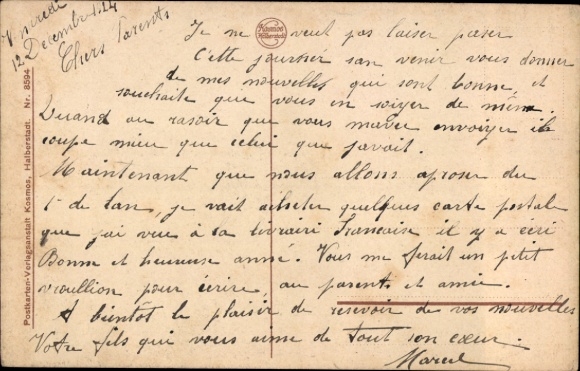 Vendredi
12 Decembre 1.24
Chers Parents
Je ne veut pas laiser paser
Cette journier san venir vous donner
de mes nouvelles qui sont bonne et
souhaite que vous en soiyer de même.
Quand au rasoir que vous mavez envoiyer il
coupe mieu que celui que javait.
Maintenant que nous allons aproser du
1r de lan, je vait acheter quelques carte postale
que j'ai veu à la livrairi francaise il y a ecri
Bonne et heureuse anné. Vous me ferait un petit
vroullion pour écrire au parent et amie.
A bientôt le plaisir de resevoir de vos nouvelles
Votre fils qui vous aime de tout son cœur.
Marcel
Kosmos
Halberstadt
Postkarten-Verlagsanstalt Kosmos, Halberstadt. Nr. 8594